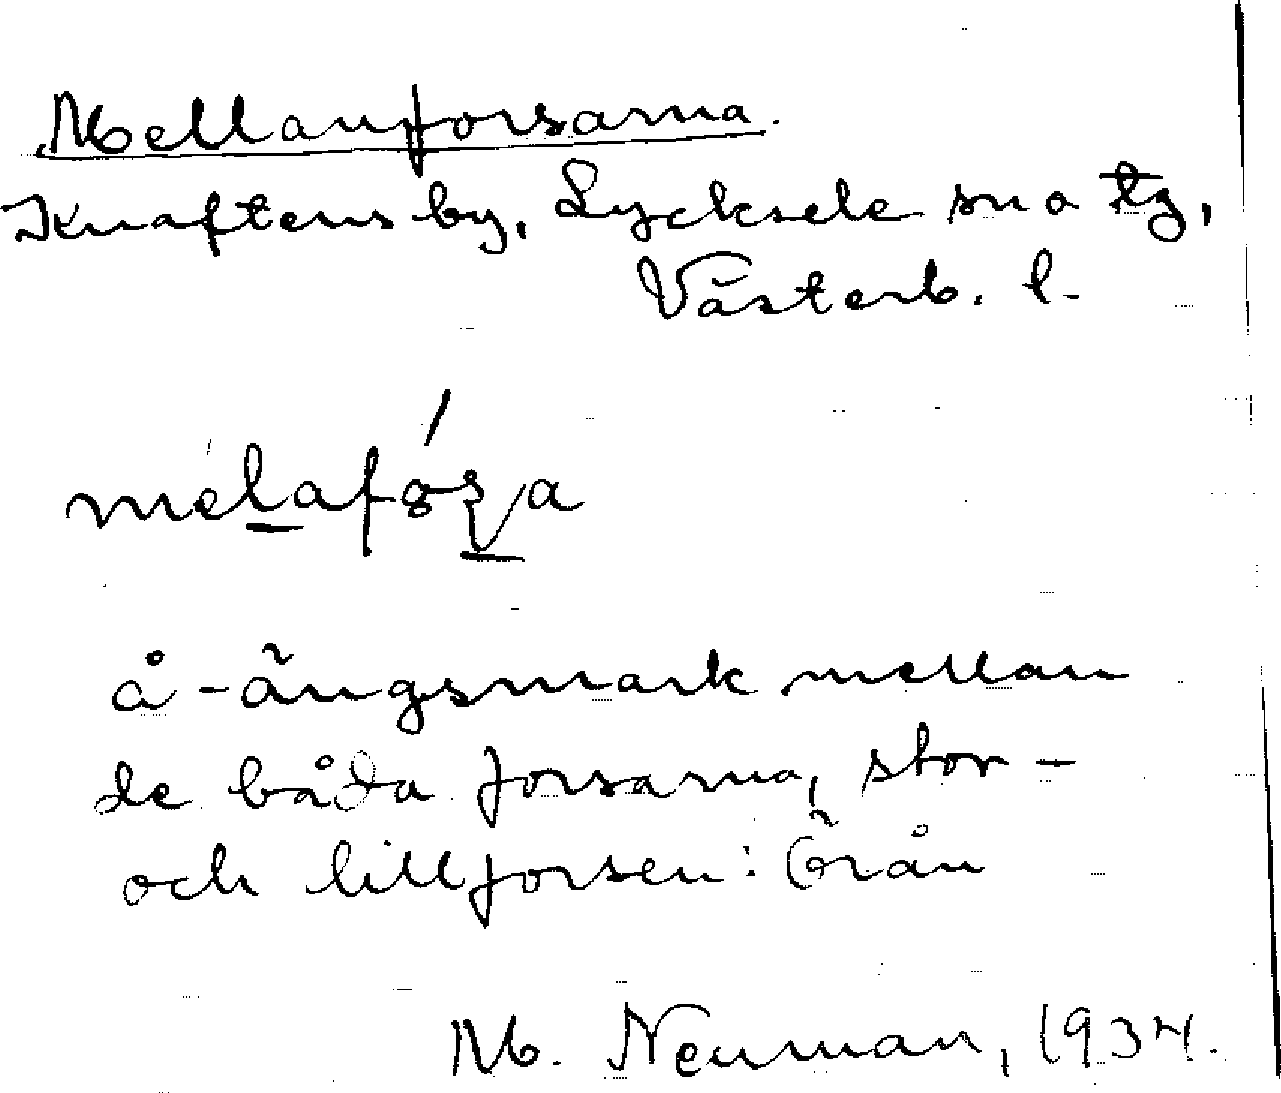 Mellanforsarna.
Knaftens by, Lycksele sn o tg,
Västerb. l.
melafo̱ʂa
å-ängsmark mellan
de båda forsarna, stor-
och lillforsen: Örån
M. Neuman, 1934.